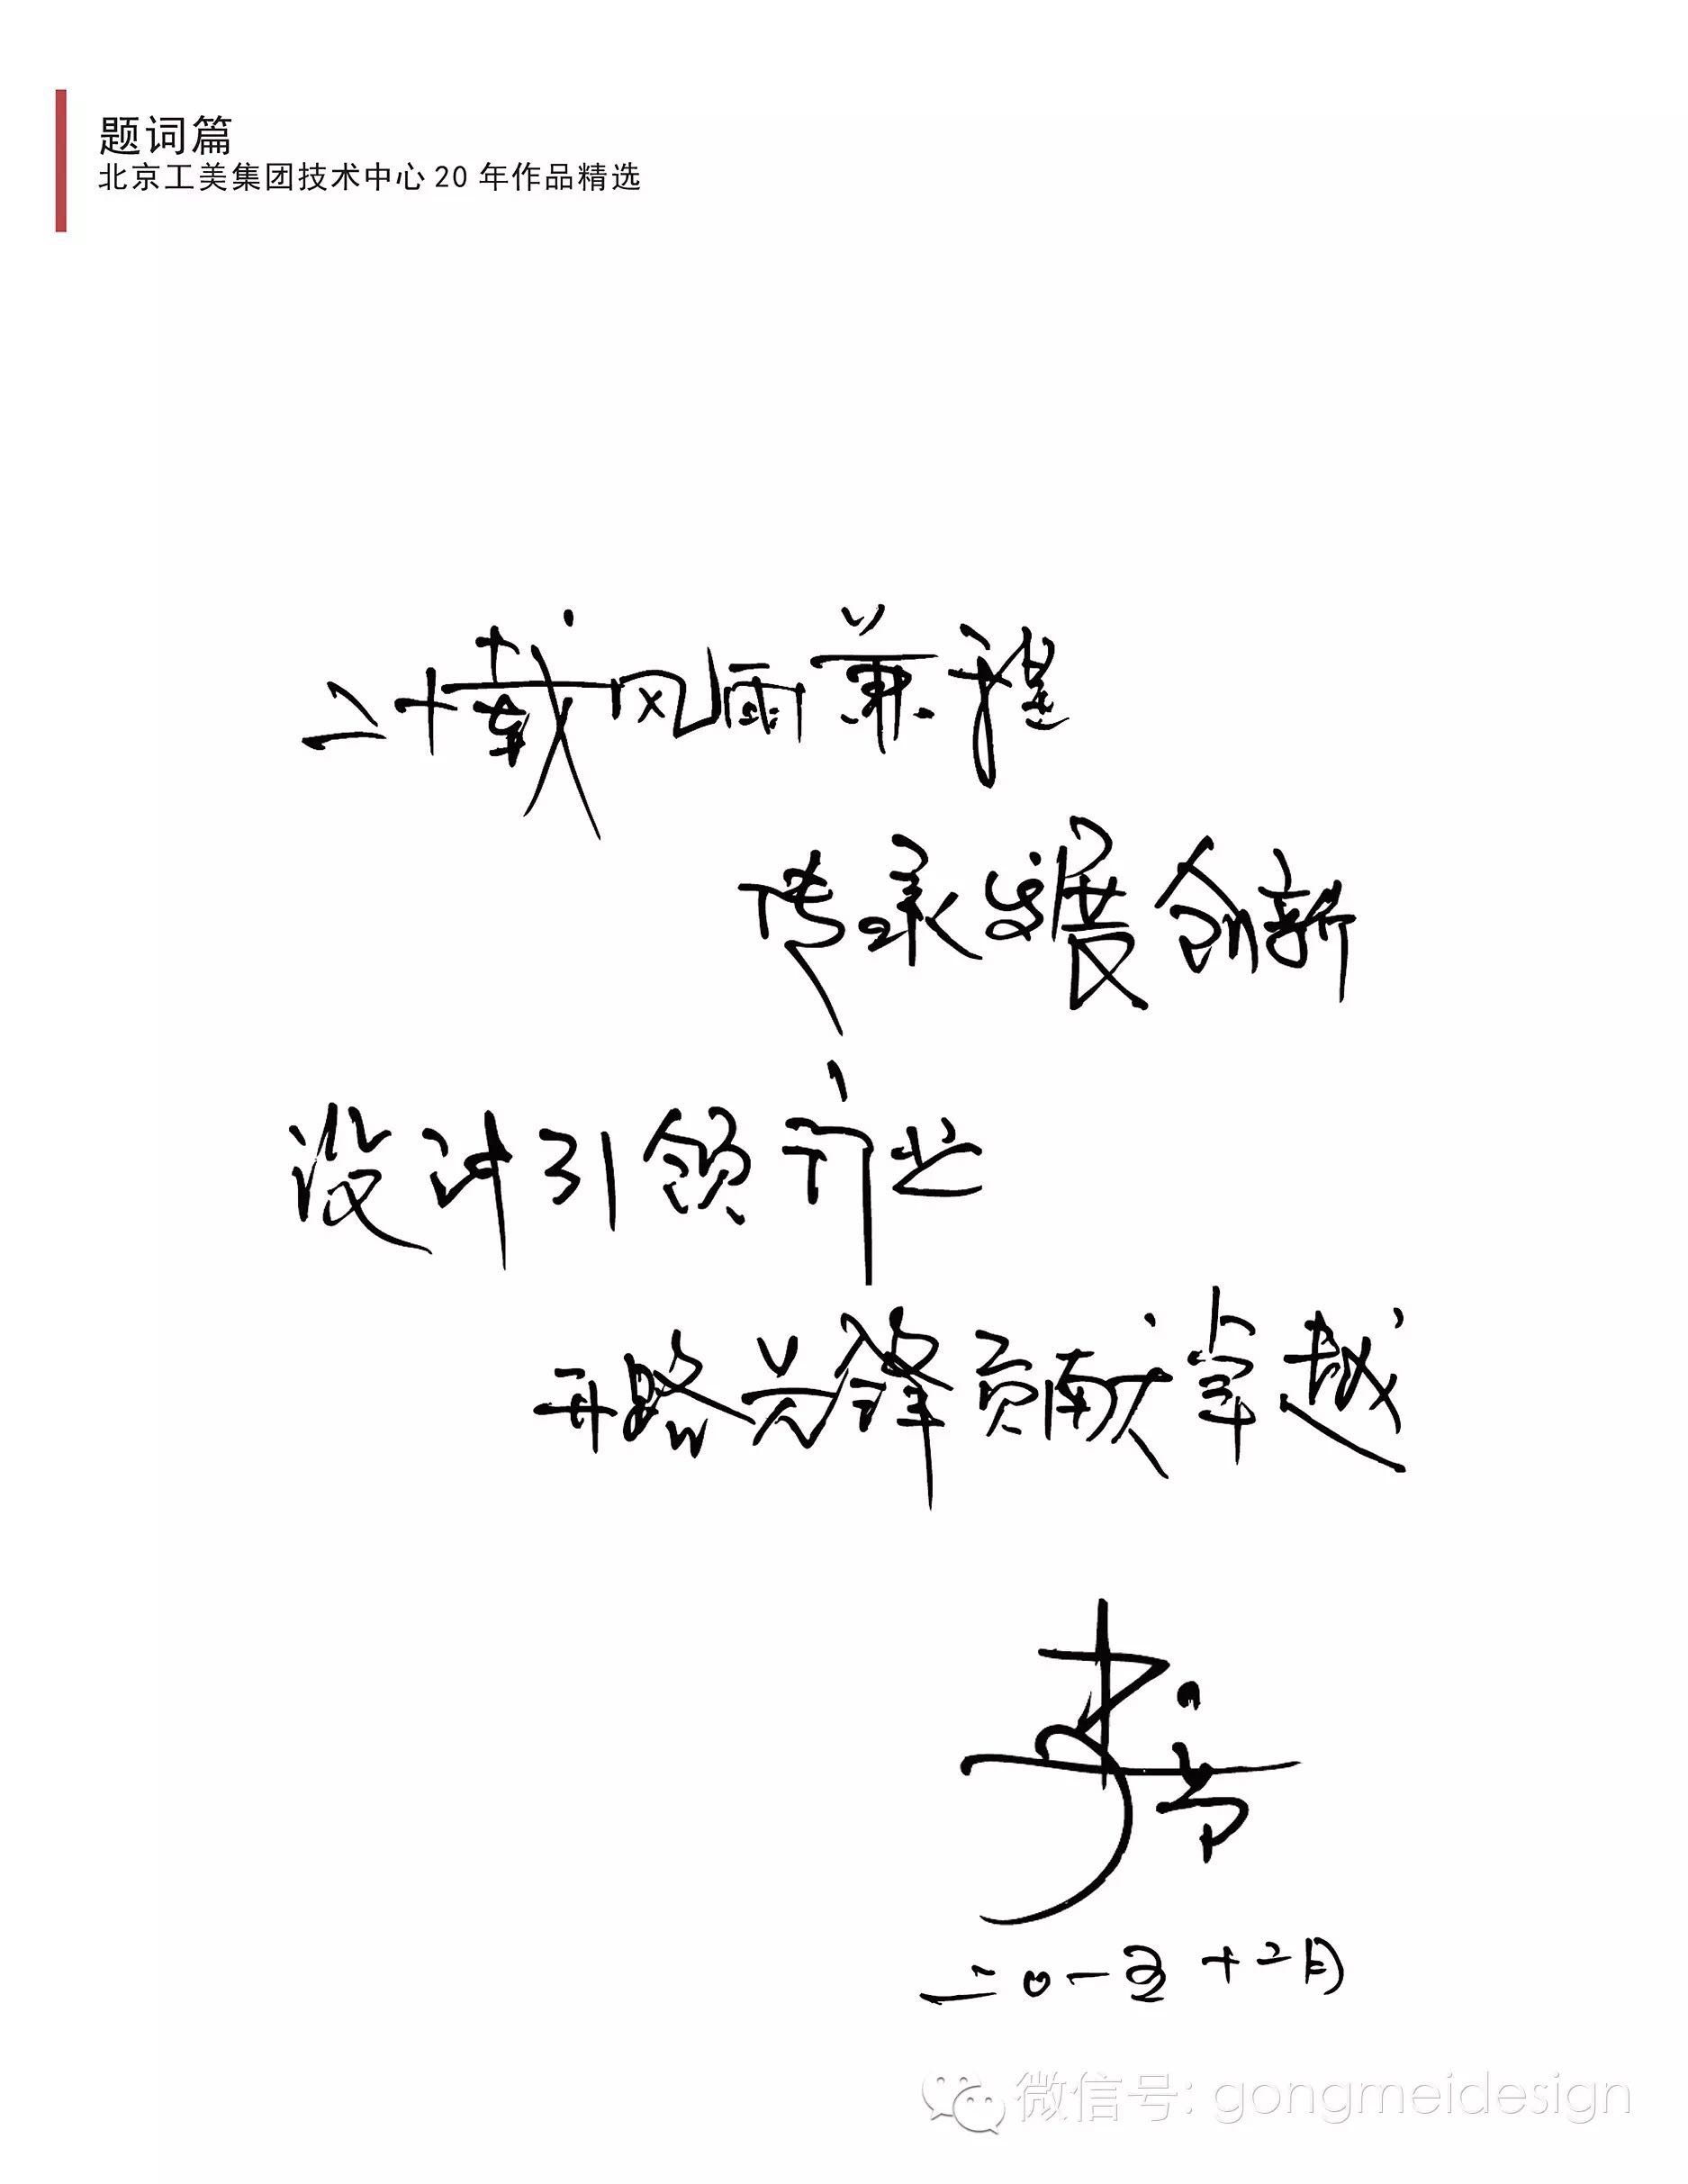 题词篇
北京工美集团技术中心20年作品精选
二十载风雨兼程
传承发展创新
设计引领行业
开路先锋贡献卓越
二〇一五十二月
微信号: gongmeidesign